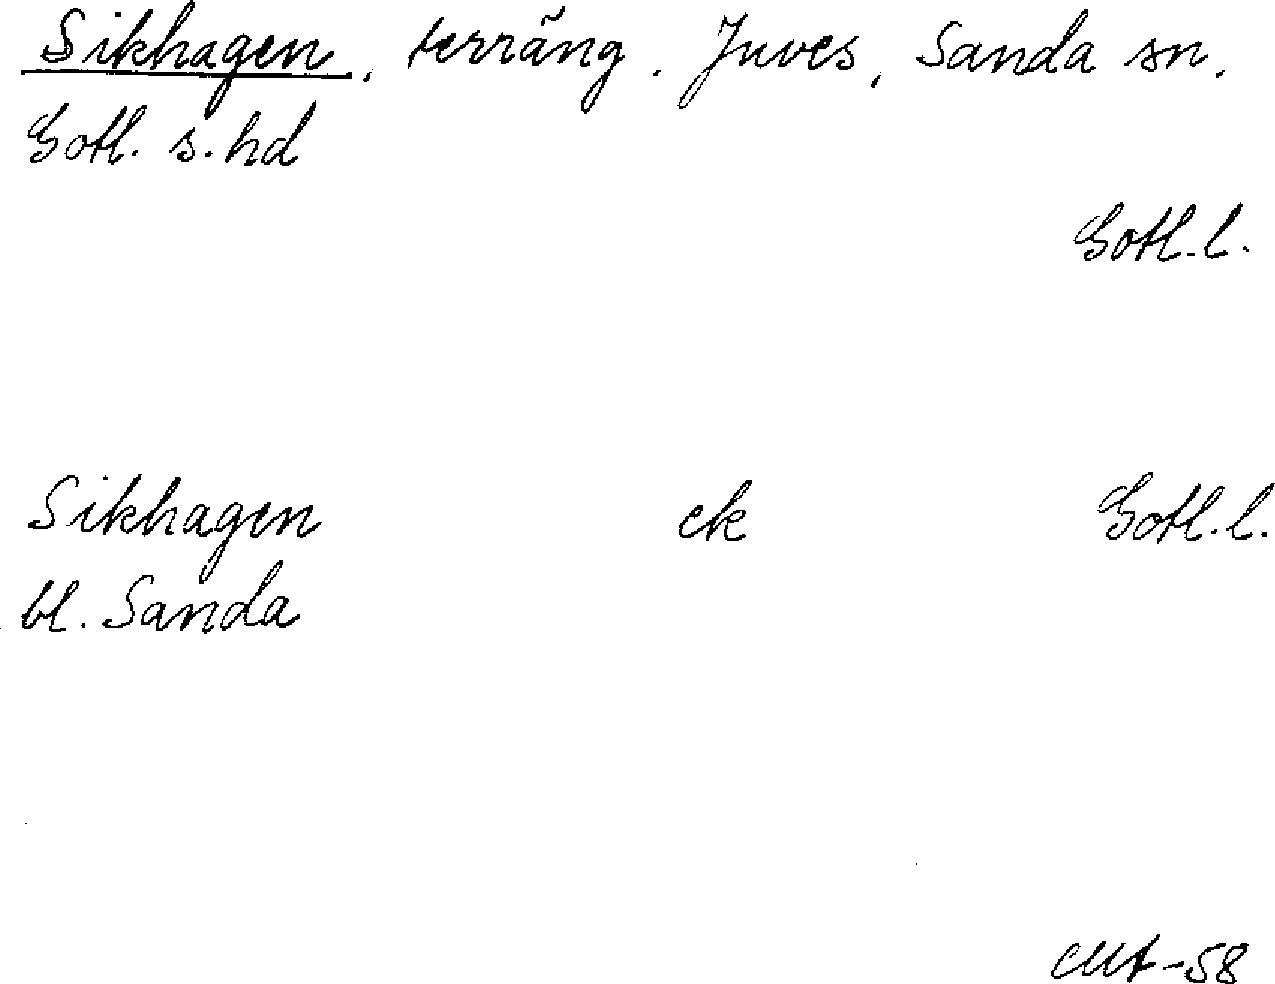 Sikhagen, terräng. Juves, Sanda sn,
Gotl. s. hd
Gotl. l.
Sikhagen ek Gotl. l.
bl. Sanda
-58